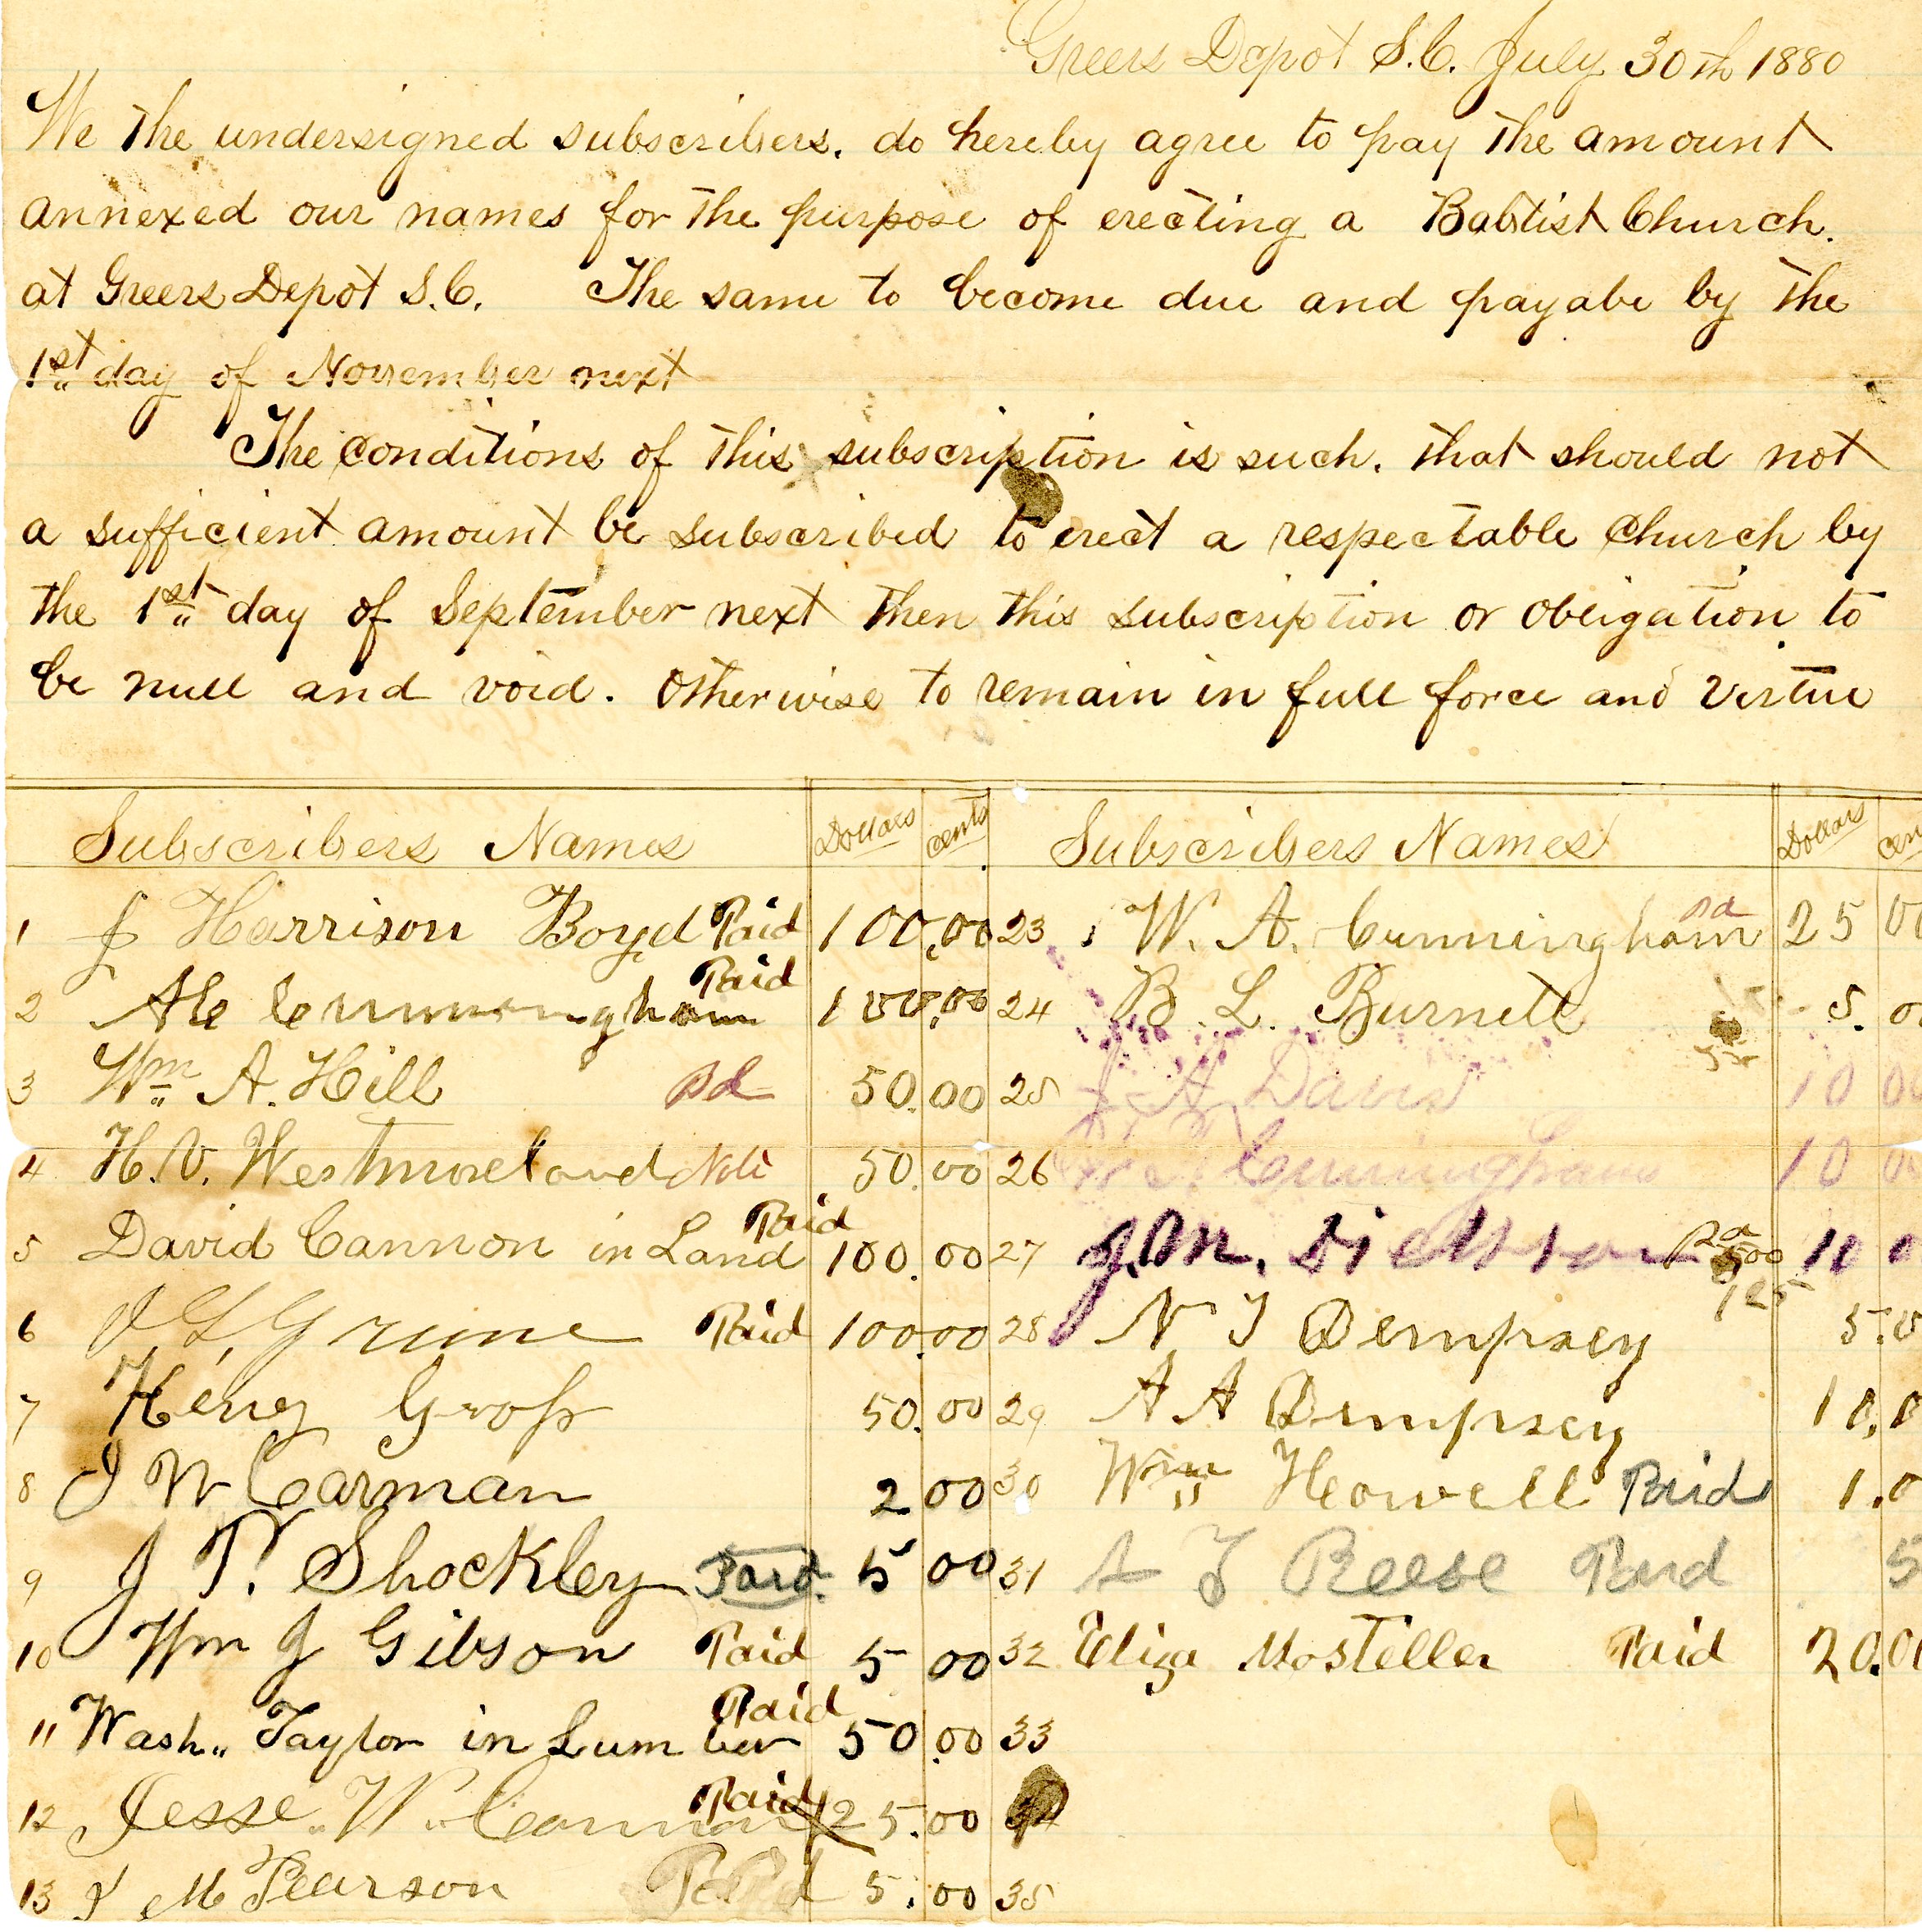 Greers Depot S.C. July 30th 1880
We the undersigned subscribers. do hereby agree to pay the amount
annexed our names for the purpose of erecting a Babtist Church.
at Greers Depot S.C. The same to become due and payabe by the
1st day of November next
The conditions of this subscription is such. that should not
a sufficient amount be subscribed to erect a respectable Church by
the 1st day of September next then this subscription or obligation to
be null and void. otherwise to remain in full force and virtue
Subscribers Names Dollars cents Subscribers Names Dollars
1 J Harrison Boyd Paid 100.00 23 W. A. Cunningham 25 00
2 Cunningham Paid 100.00 24 B. L. Burnett 5.
3 Wm A. Hill pd 50.00 25 J A Davis 10 00
4 H. V. Westmoreland 50.00 26 Cunningham 10
5 David Cannon in Land Paid 100.00 27 J. M. Dickson 10
6 Paid 100.00 28 N J Dempsey 5.
7 Henry Gross 50.00 29 A A Dempsey 10.
8 J W Carman 2 00 30 Wm Howell Paid 1.
9 J T. Shockley Paid. 5 00 31 A J Reese Paid 5
10 Wm J Gibson Paid 5 00 32 Eliza Mosteller Paid 20.00
11 Wash. Taylor in Lumber Paid 50.00 33
12 Jesse W. Paid 25.00 34
13 J M Pearson Paid 5.00 35